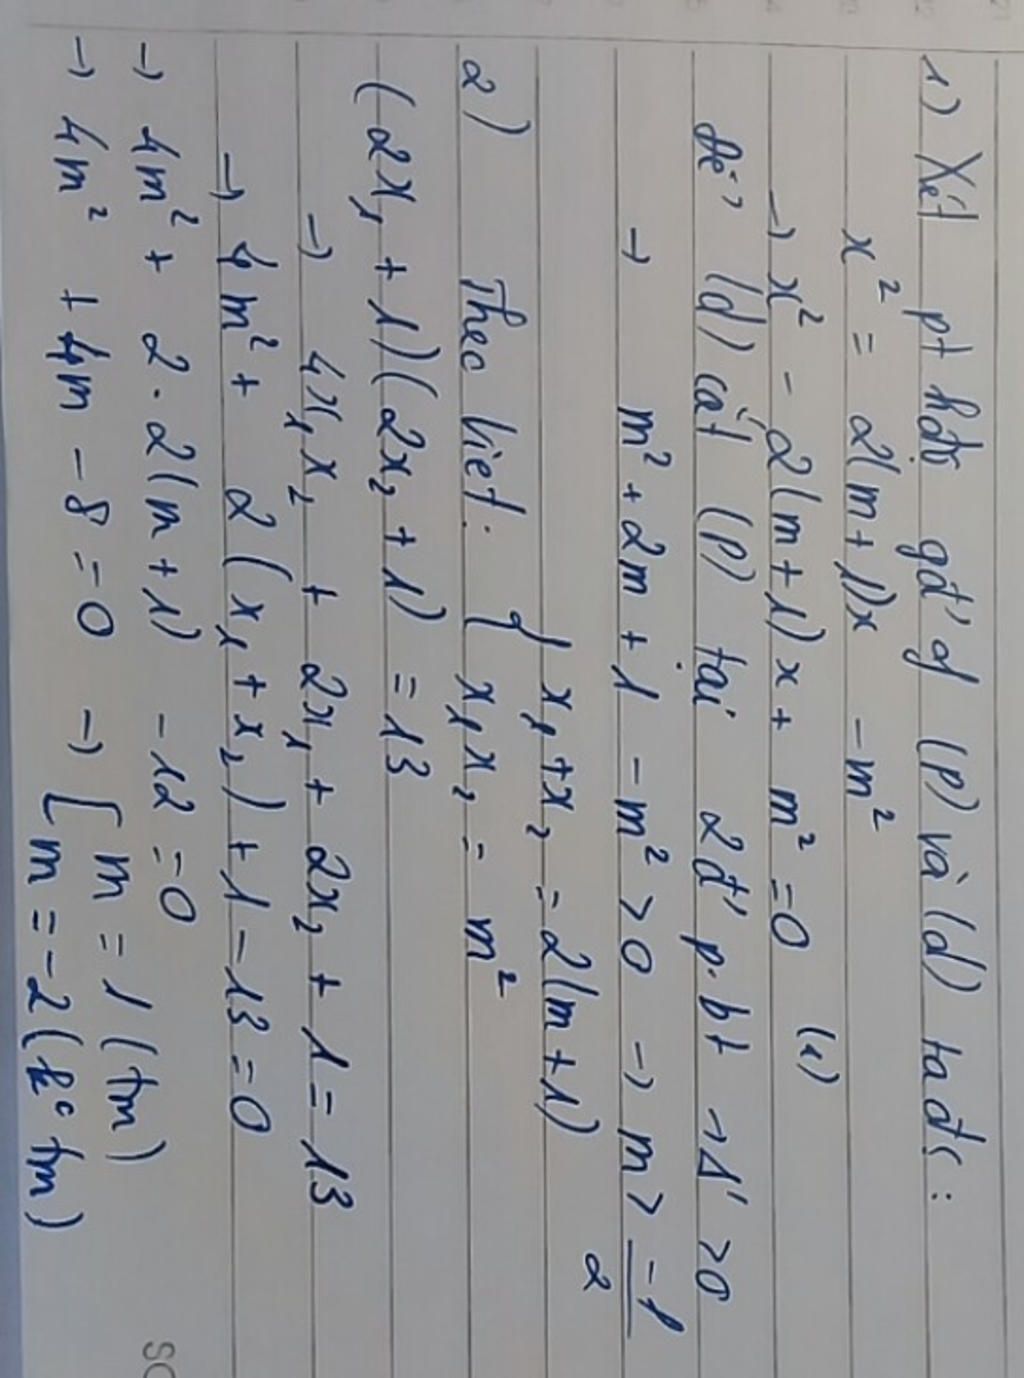 1) Xét pt hđộ gđ' of (P) và (d) ta đc:
x² = 2(m+1)x - m²
→ x² - 2(m+1)x + m² = 0 (1)
Để (d) cắt (P) tại 2đ' p.bt → Δ' > 0
→ m² + 2m + 1 - m² > 0 → m > -1/2
2) Theo Viet: { x₁ + x₂ = 2(m+1)
x₁x₂ = m²
(2x₁ + 1)(2x₂ + 1) = 13
→ 4x₁x₂ + 2x₁ + 2x₂ + 1 = 13
→ 4m² + 2(x₁ + x₂) + 1 - 13 = 0
→ 4m² + 2.2(m+1) - 12 = 0
→ 4m² + 4m - 8 = 0 → [ m = 1 (tm)
m = -2 (kᵒ tm)